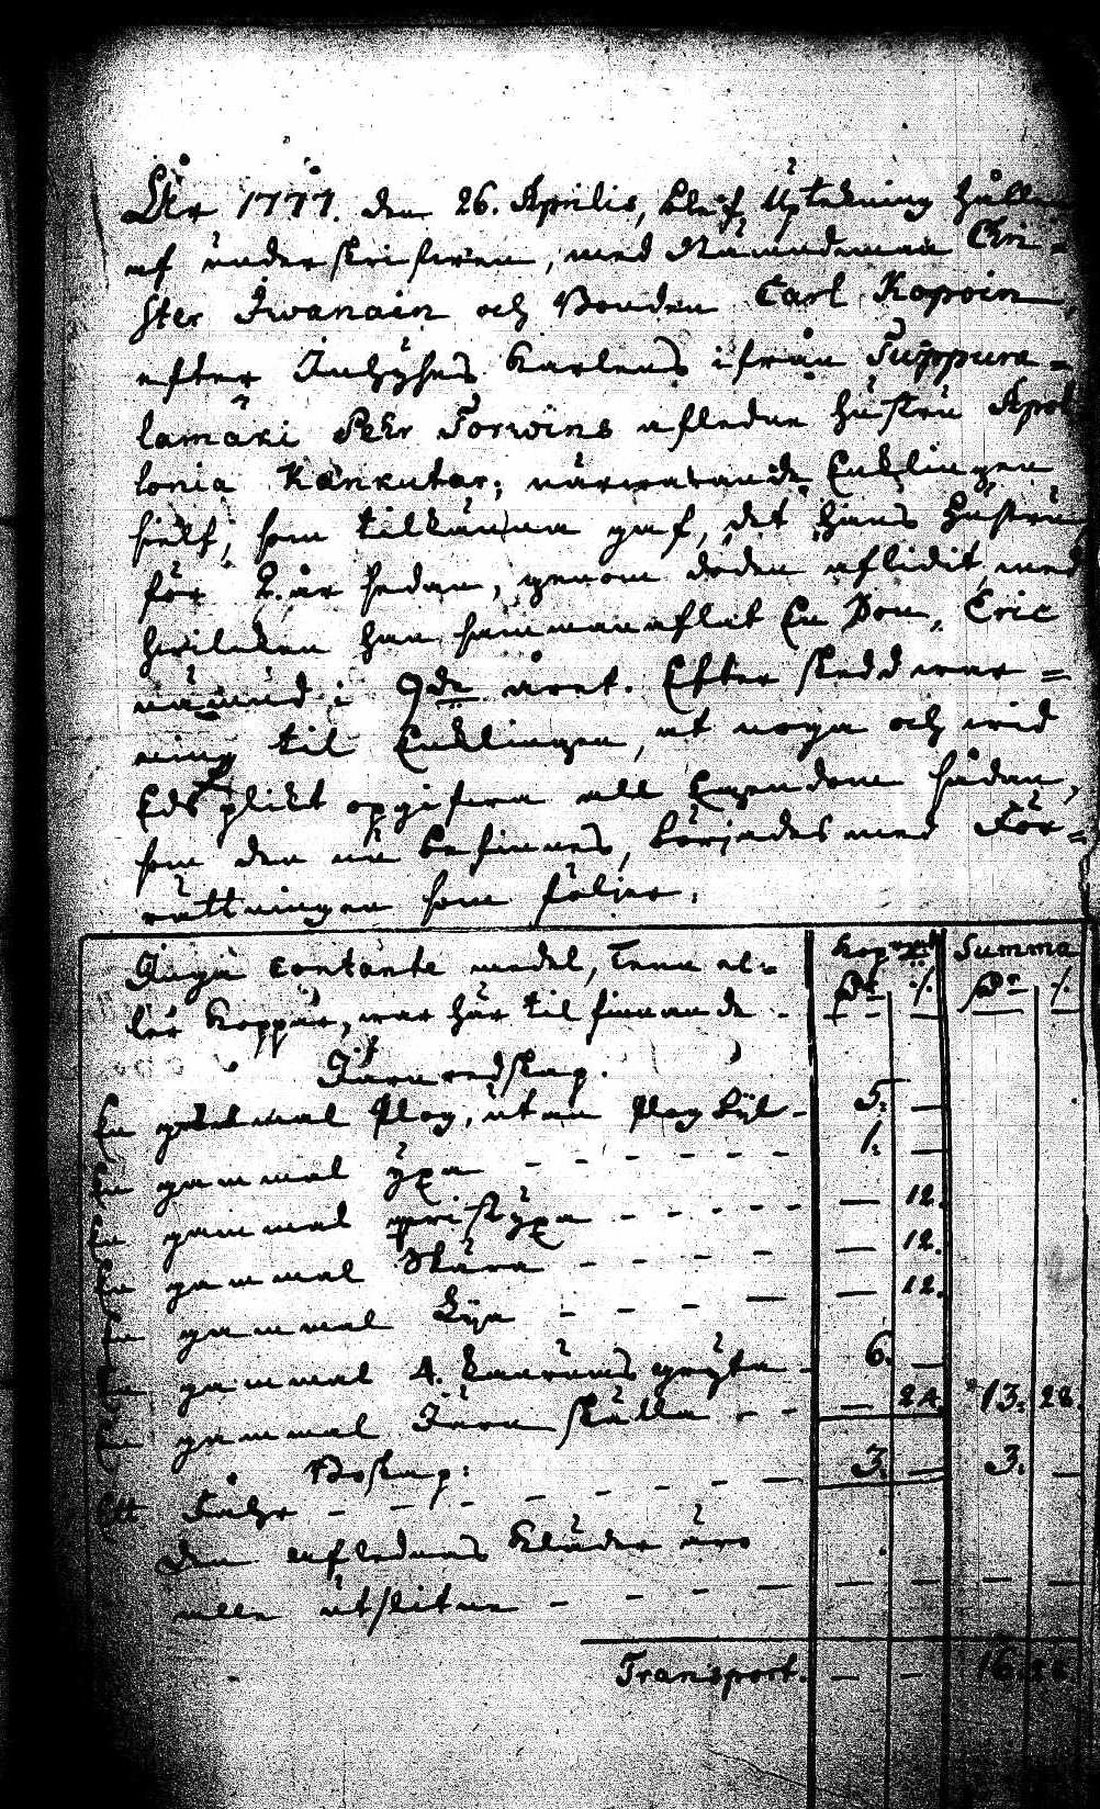 År 1777. den 26. Aprilis, blef Uptekning hållen
af underskrifwen, med Nämndeman Chri=
ster Iwanain och Bonden Carl Kopoin,
efter Inhyses Karlens ifrån Tuppura=
lamäki Pehr Torwins afledne hustru Apol
lonia Känkutar; närwarande Enklingen
sielf, som tilkänna gaf, det hans Hustru
för 2. år sedan, genom döden aflidit, med
hwilcken han sammanaflat En Son, Eric
nämnd i 9de året. Efter skedd war=
ning til Enklingen, at noga och wid
Eds plikt opgifwa all Egendom sådan,
som den nu befinnes, börjades med För=
rättningen som följer:
Inga contante medel, Tenn el=
ler Koppar, war här til finnande - - - - -
Kopp mt Summa
Dr ./. Dr ./.
Järnredskap.
En gammal Plog, utan Plog byl - 5. —
En gammal yxa - - - - - - 1. —
En gammal yxa - - - - - — 12.
En gammal Skära - - - - — 12.
En gammal Lya - - - — — 12.
En gammal 4. kannors gryta - 6. —
En gammal Järn skälla - - - — 24. 13. 28.
Boskap:
Ett Fahr - - - - - - - — 3. — 3. —
Den aflednas Kläder äro
alla utslitne - - - — — — — —
Transport. — — 16. 28